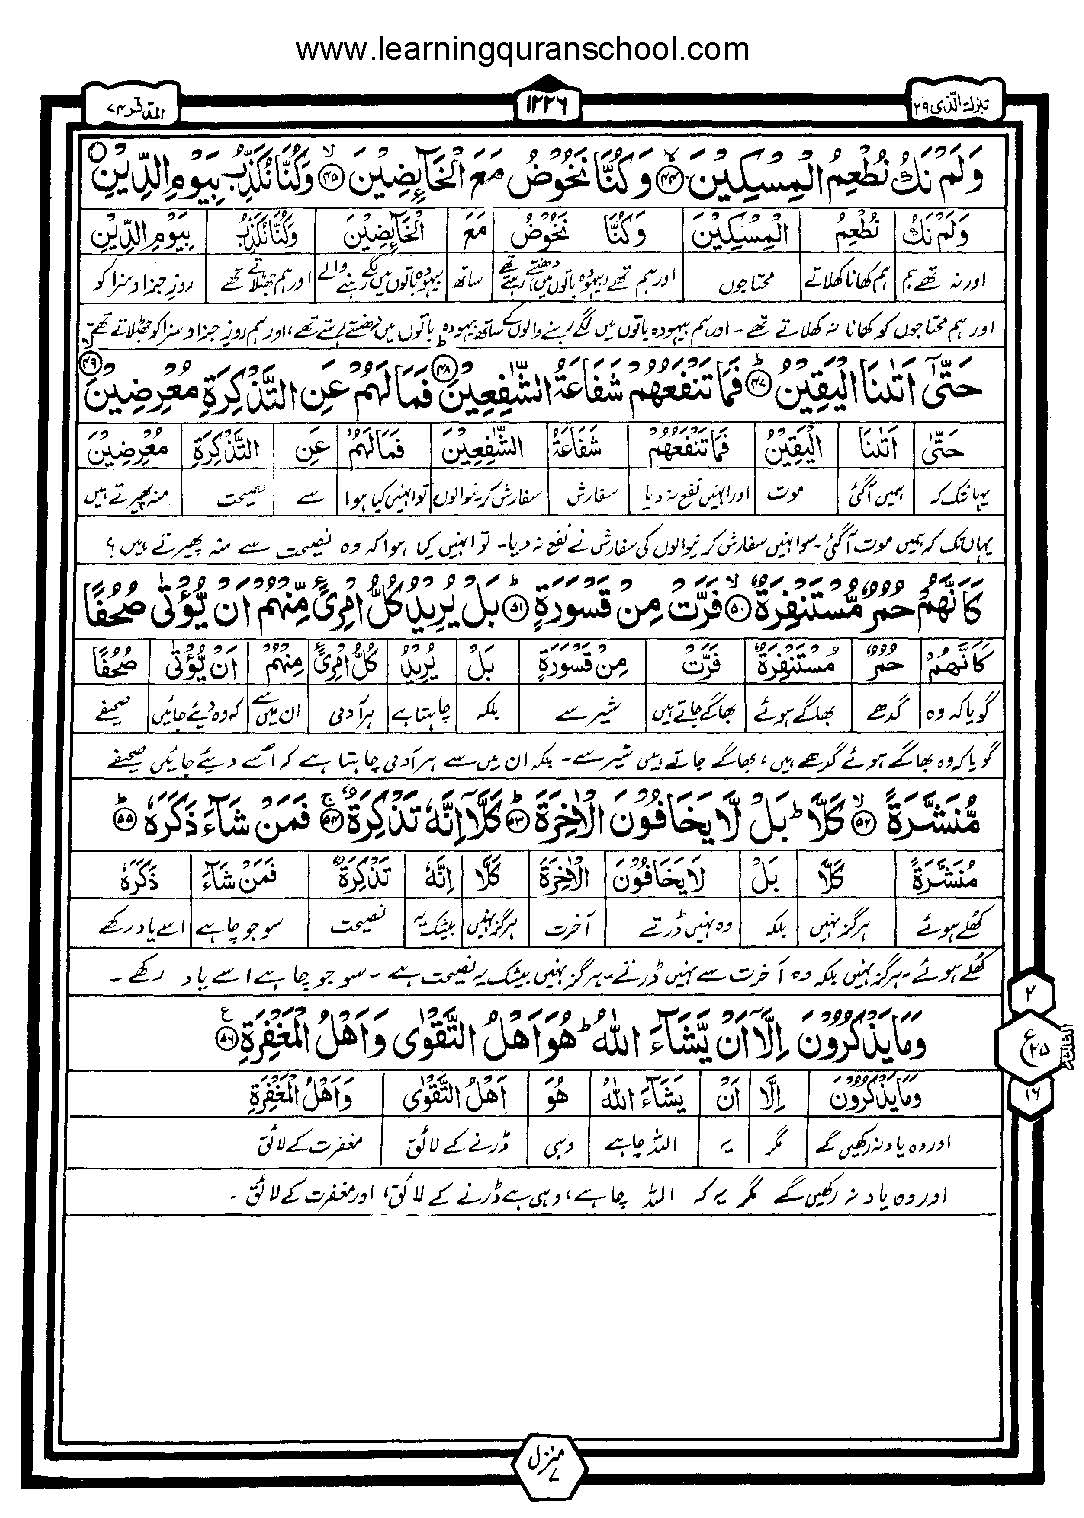 www.learningquranschool.com
تبٰرك الّذی ۲۹
۱۲۲۶
المدّثّر ۷۴
وَلَمْ نَكُ نُطْعِمُ الْمِسْكِيْنَ ۙ﴿۴۴﴾ وَكُنَّا نَخُوْضُ مَعَ الْخَآئِضِيْنَ ۙ﴿۴۵﴾ وَكُنَّا نُكَذِّبُ بِيَوْمِ الدِّيْنِ
وَلَمْ نَكُ نُطْعِمُ الْمِسْكِيْنَ وَكُنَّا نَخُوْضُ مَعَ الْخَآئِضِيْنَ وَكُنَّا نُكَذِّبُ بِيَوْمِ الدِّيْنِ
اور نہ تھے ہم ہم کھانا کھلاتے محتاجوں اور ہم تھے بیہودہ باتوں میں دھنستے رہتے تھے ساتھ بیہودہ باتوں میں لگے رہنے والے اور ہم جھٹلاتے تھے روزِ جزا و سزا کو
اور ہم محتاجوں کو کھانا نہ کھلاتے تھے۔ اور ہم بیہودہ باتوں میں لگے رہنے والوں کے ساتھ بیہودہ باتوں میں دھنستے رہتے تھے، اور ہم روزِ جزا و سزا کو جھٹلاتے تھے
حَتّٰىٓ اَتٰىنَا الْيَقِيْنُ ؕ﴿۴۷﴾ فَمَا تَنْفَعُهُمْ شَفَاعَةُ الشّٰفِعِيْنَ ؕ﴿۴۸﴾ فَمَا لَهُمْ عَنِ التَّذْكِرَةِ مُعْرِضِيْنَ ۙ﴿۴۹﴾
حَتّٰى اَتٰىنَا الْيَقِيْنُ فَمَا تَنْفَعُهُمْ شَفَاعَةُ الشّٰفِعِيْنَ فَمَا لَهُمْ عَنِ التَّذْكِرَةِ مُعْرِضِيْنَ
یہانتک کہ ہمیں آگئی موت اور انہیں نفع نہ دیا سفارش سفارش کرنیوالوں تو انہیں کیا ہوا سے نصیحت منہ پھیرتے ہیں
یہاں تک کہ ہمیں موت آگئی۔ سو انہیں سفارش کرنیوالوں کی سفارش نے نفع نہ دیا۔ تو انہیں کیا ہوا کہ وہ نصیحت سے منہ پھیرتے ہیں؟
كَاَنَّهُمْ حُمُرٌ مُّسْتَنْفِرَةٌ ۙ﴿۵۰﴾ فَرَّتْ مِنْ قَسْوَرَةٍ ؕ﴿۵۱﴾ بَلْ يُرِيْدُ كُلُّ امْرِئٍ مِّنْهُمْ اَنْ يُّؤْتٰى صُحُفًا
كَاَنَّهُمْ حُمُرٌ مُسْتَنْفِرَةٌ فَرَّتْ مِنْ قَسْوَرَةٍ بَلْ يُرِيْدُ كُلُّ امْرِئٍ مِنْهُمْ اَنْ يُّؤْتٰى صُحُفًا
گویا کہ وہ گدھے بھاگے ہوئے بھاگے جاتے ہیں شیر سے بلکہ چاہتا ہے ہر آدمی ان میں سے کہ وہ دیئے جائیں صحیفے
گویا کہ وہ بھاگے ہوئے گدھے ہیں، بھاگے جاتے ہیں شیر سے۔ بلکہ ان میں سے ہر آدمی چاہتا ہے کہ اسے دیئے جائیں صحیفے
مُّنَشَّرَةً ۙ﴿۵۲﴾ كَلَّا ؕ بَلْ لَّا يَخَافُوْنَ الْاٰخِرَةَ ؕ﴿۵۳﴾ كَلَّاۤ اِنَّهٗ تَذْكِرَةٌ ۚ﴿۵۴﴾ فَمَنْ شَآءَ ذَكَرَهٗ ؕ﴿۵۵﴾
مُنَشَّرَةً كَلَّا بَلْ لَا يَخَافُوْنَ الْاٰخِرَةَ كَلَّا اِنَّهٗ تَذْكِرَةٌ فَمَنْ شَآءَ ذَكَرَهٗ
کھلے ہوئے ہرگز نہیں بلکہ وہ نہیں ڈرتے آخرت ہرگز نہیں بیشک یہ نصیحت سو جو چاہے اسے یاد رکھے
کھلے ہوئے۔ ہرگز نہیں بلکہ وہ آخرت سے نہیں ڈرتے۔ ہرگز نہیں بیشک یہ نصیحت ہے۔ سو جو چاہے اسے یاد رکھے۔
وَمَا يَذْكُرُوْنَ اِلَّاۤ اَنْ يَّشَآءَ اللّٰهُ ؕ هُوَ اَهْلُ التَّقْوٰى وَاَهْلُ الْمَغْفِرَةِ ﴿۵۶﴾ ع
وَمَا يَذْكُرُوْنَ اِلَّا اَنْ يَشَآءَ اللّٰهُ هُوَ اَهْلُ التَّقْوٰى وَاَهْلُ الْمَغْفِرَةِ
اور وہ یاد نہ رکھیں گے مگر یہ اللہ چاہے وہی ڈرنے کے لائق مغفرت کے لائق
اور وہ یاد نہ رکھیں گے مگر یہ کہ اللہ چاہے، وہی ہے ڈرنے کے لائق، اور مغفرت کے لائق۔
۲
ع ۲۵
۱۶
منزل ۷